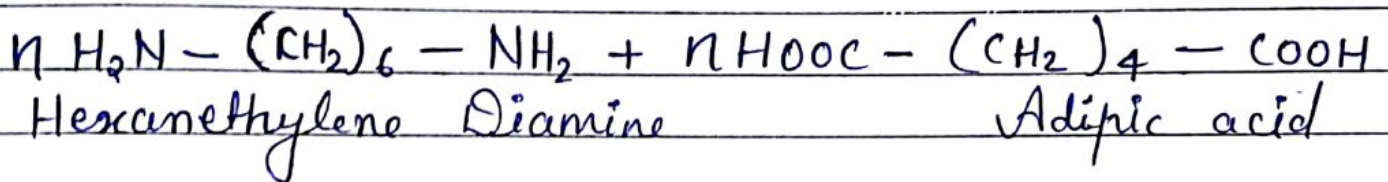 n H₂N – (CH₂)₆ – NH₂ + nHOOC – (CH₂)₄ – COOH
Hexanethylene Diamine Adipic acid